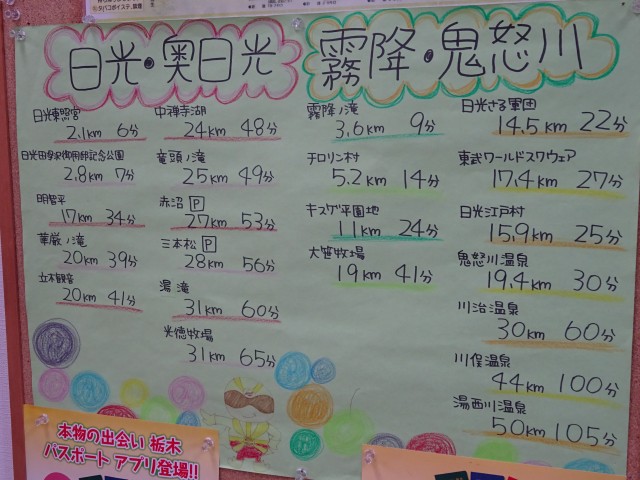 タバコポイステ、禁煙
日光・奥日光
日光東照宮
2.1km 6分
日光田母沢御用邸記念公園
2.8km 7分
明智平
17km 34分
華厳ノ滝
20km 39分
立木観音
20km 41分
中禅寺湖
24km 48分
竜頭ノ滝
25km 49分
赤沼 P
27km 53分
三本松 P
28km 56分
湯滝
31km 60分
光徳牧場
31km 65分
霧降・鬼怒川
霧降ノ滝
3.6km 9分
チロリン村
5.2km 14分
キスゲ平園地
11km 24分
大笹牧場
19km 41分
日光さる軍団
14.5km 22分
東武ワールドスクウェア
17.4km 27分
日光江戸村
15.9km 25分
鬼怒川温泉
19.4km 30分
川治温泉
30km 60分
川俣温泉
44km 100分
湯西川温泉
50km 105分
本物の出会い 栃木
パスポート アプリ登場!!